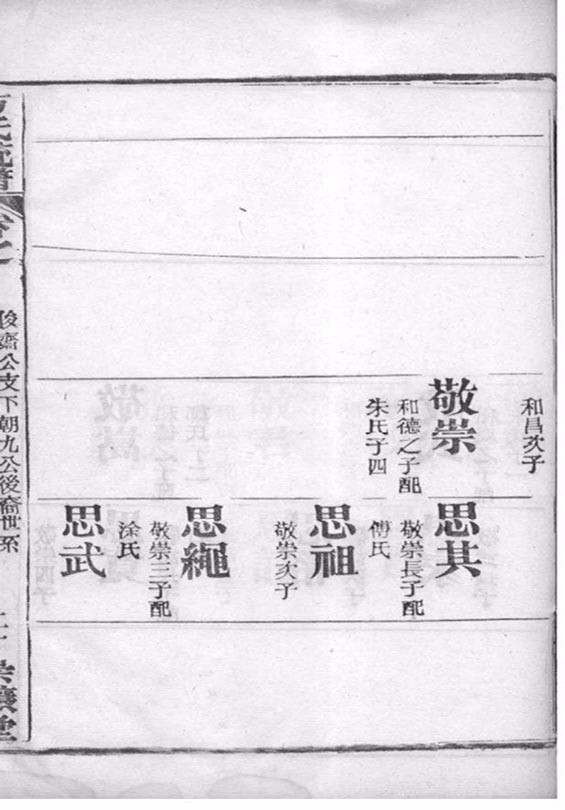 和昌次子
敬崇
和德之子配
朱氏子四
思其
敬崇長子配
傅氏
思祖
敬崇次子
思繩
敬崇三子配
涂氏
思武
氏統譜
卷之
俊齋公支下朝九公後裔世系
崇讓堂